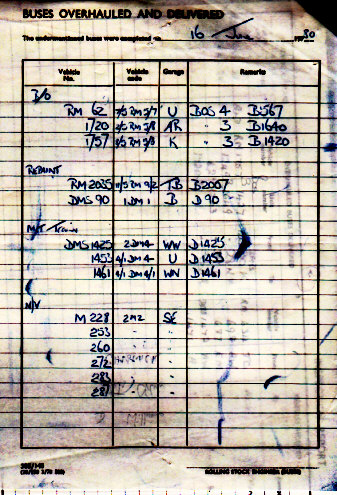 BUSES OVERHAULED AND DELIVERED
The undermentioned buses were completed on 16 June 1980
Vehicle No. Vehicle code Garage Remarks
B/O
RM 62 2/5 RM 5/7 U BOS 4 B567
1/20 2/5 RM 5/8 AR " 3 B1640
1/57 2/5 RM 5/8 K " 3 B1420
REPAINT
RM 2035 11/5 RM 9/2 TB B2007
DMS 90 1 DM 1 B D90
M/T
DMS 1425 2 DM 4 WW D1425
1453 4/1 DM 4 U D1453
1461 4/1 DM 4/1 WN D1461
N/V
M 228 2M2 SE
253 " "
260 " "
272 "
284 "
287 "
ROLLING STOCK ENGINEER